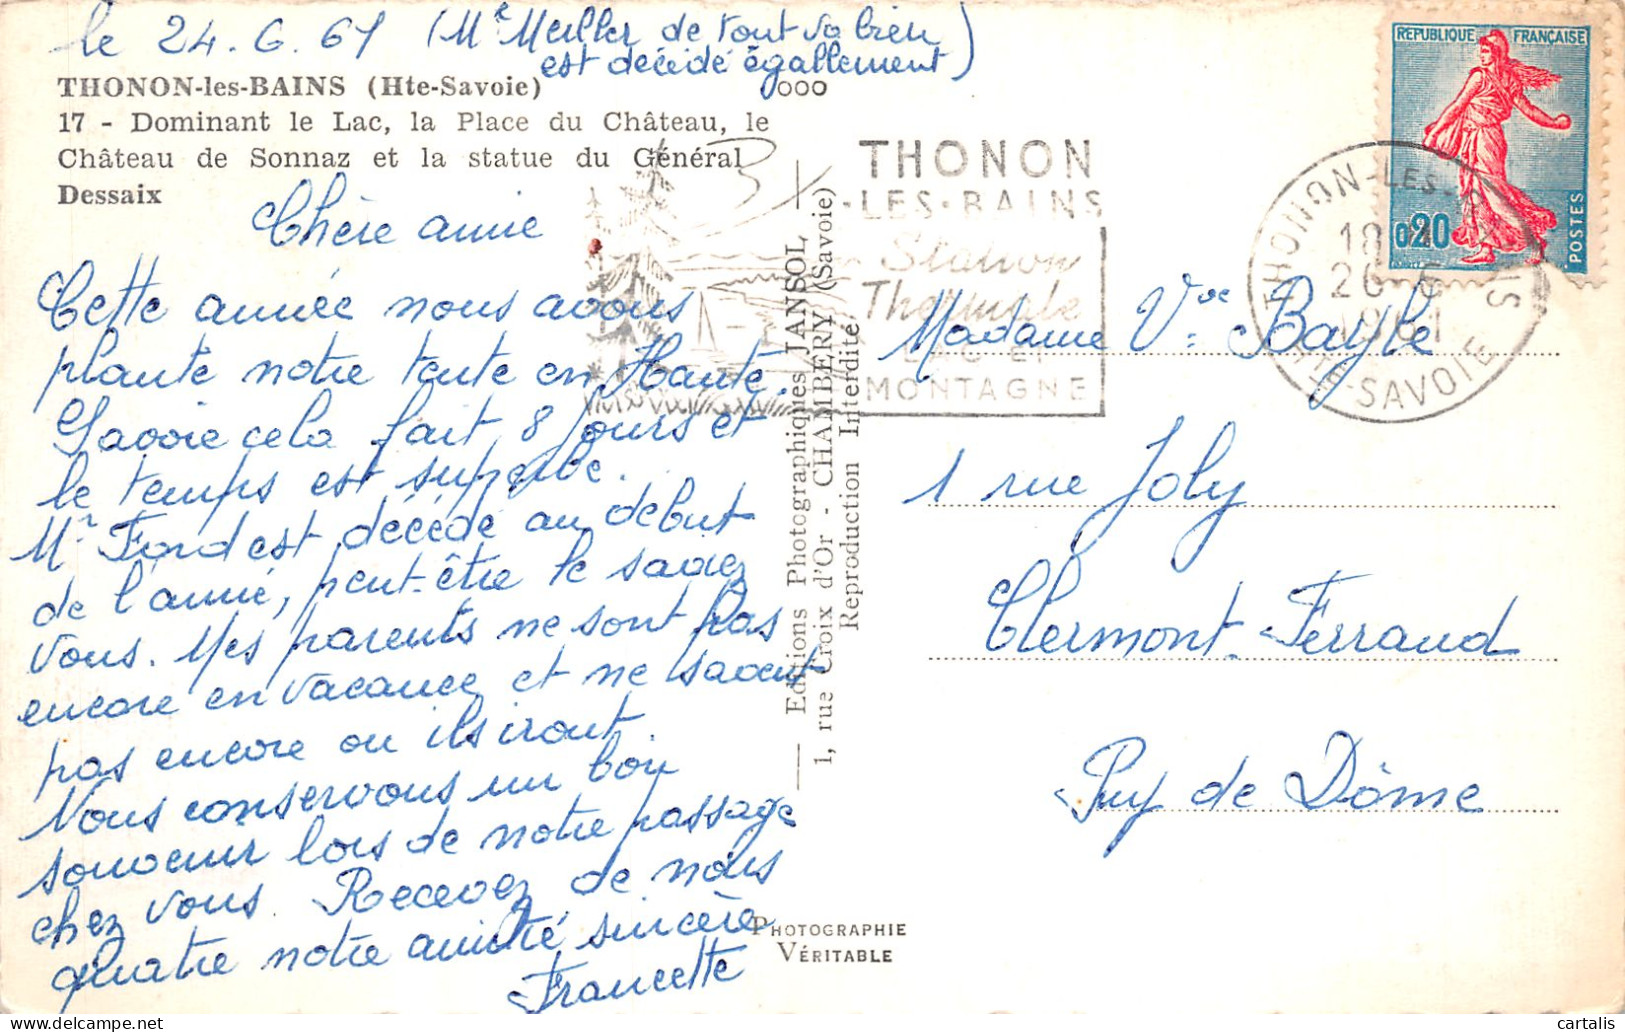 le 24.6.61 (Mr Meiller de tout va bien
est décédé égallement)
THONON-les-BAINS (Hte-Savoie) ooo
17 - Dominant le Lac, la Place du Château, le
Château de Sonnaz et la statue du Général
Dessaix
Chère amie
Cette année nous avons
planté notre tente en Haute.
Savoie cela fait 8 jours et
le temps est superbe.
Mr Fond est décédé au début
de l'année, peut-être le saviez
vous. Mes parents ne sont pas
encore en vacances et ne savent
pas encore ou ils iront.
Nous conservons un bon
souvenir lors de notre passage
chez vous. Recevez de nous
quatre notre amitié sincère
Francette
Editions Photographiques JANSOL
1, rue Croix d'Or - CHAMBÉRY (Savoie)
Reproduction Interdite
PHOTOGRAPHIE
VÉRITABLE
THONON
-LES-BAINS
Station
Thermale
LAC ET
MONTAGNE
THONON-LES-BAINS
18
26-6
1961
HTE-SAVOIE
REPUBLIQUE FRANÇAISE
0,20
POSTES
Madame Vve Bayle
1 rue Joly
Clermont-Ferrand
Puy de Dôme
cartalis